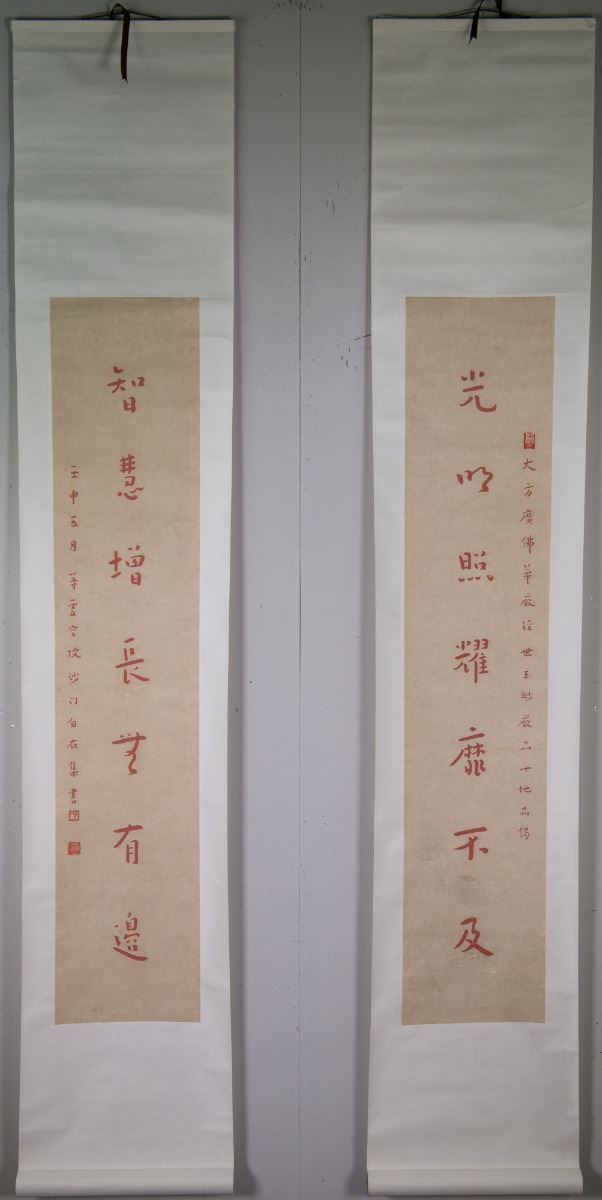 大方廣佛華嚴經世主妙嚴品十地品偈
光明照耀靡不及
智慧增長無有邊
壬申五月等雲空院沙門自在集書